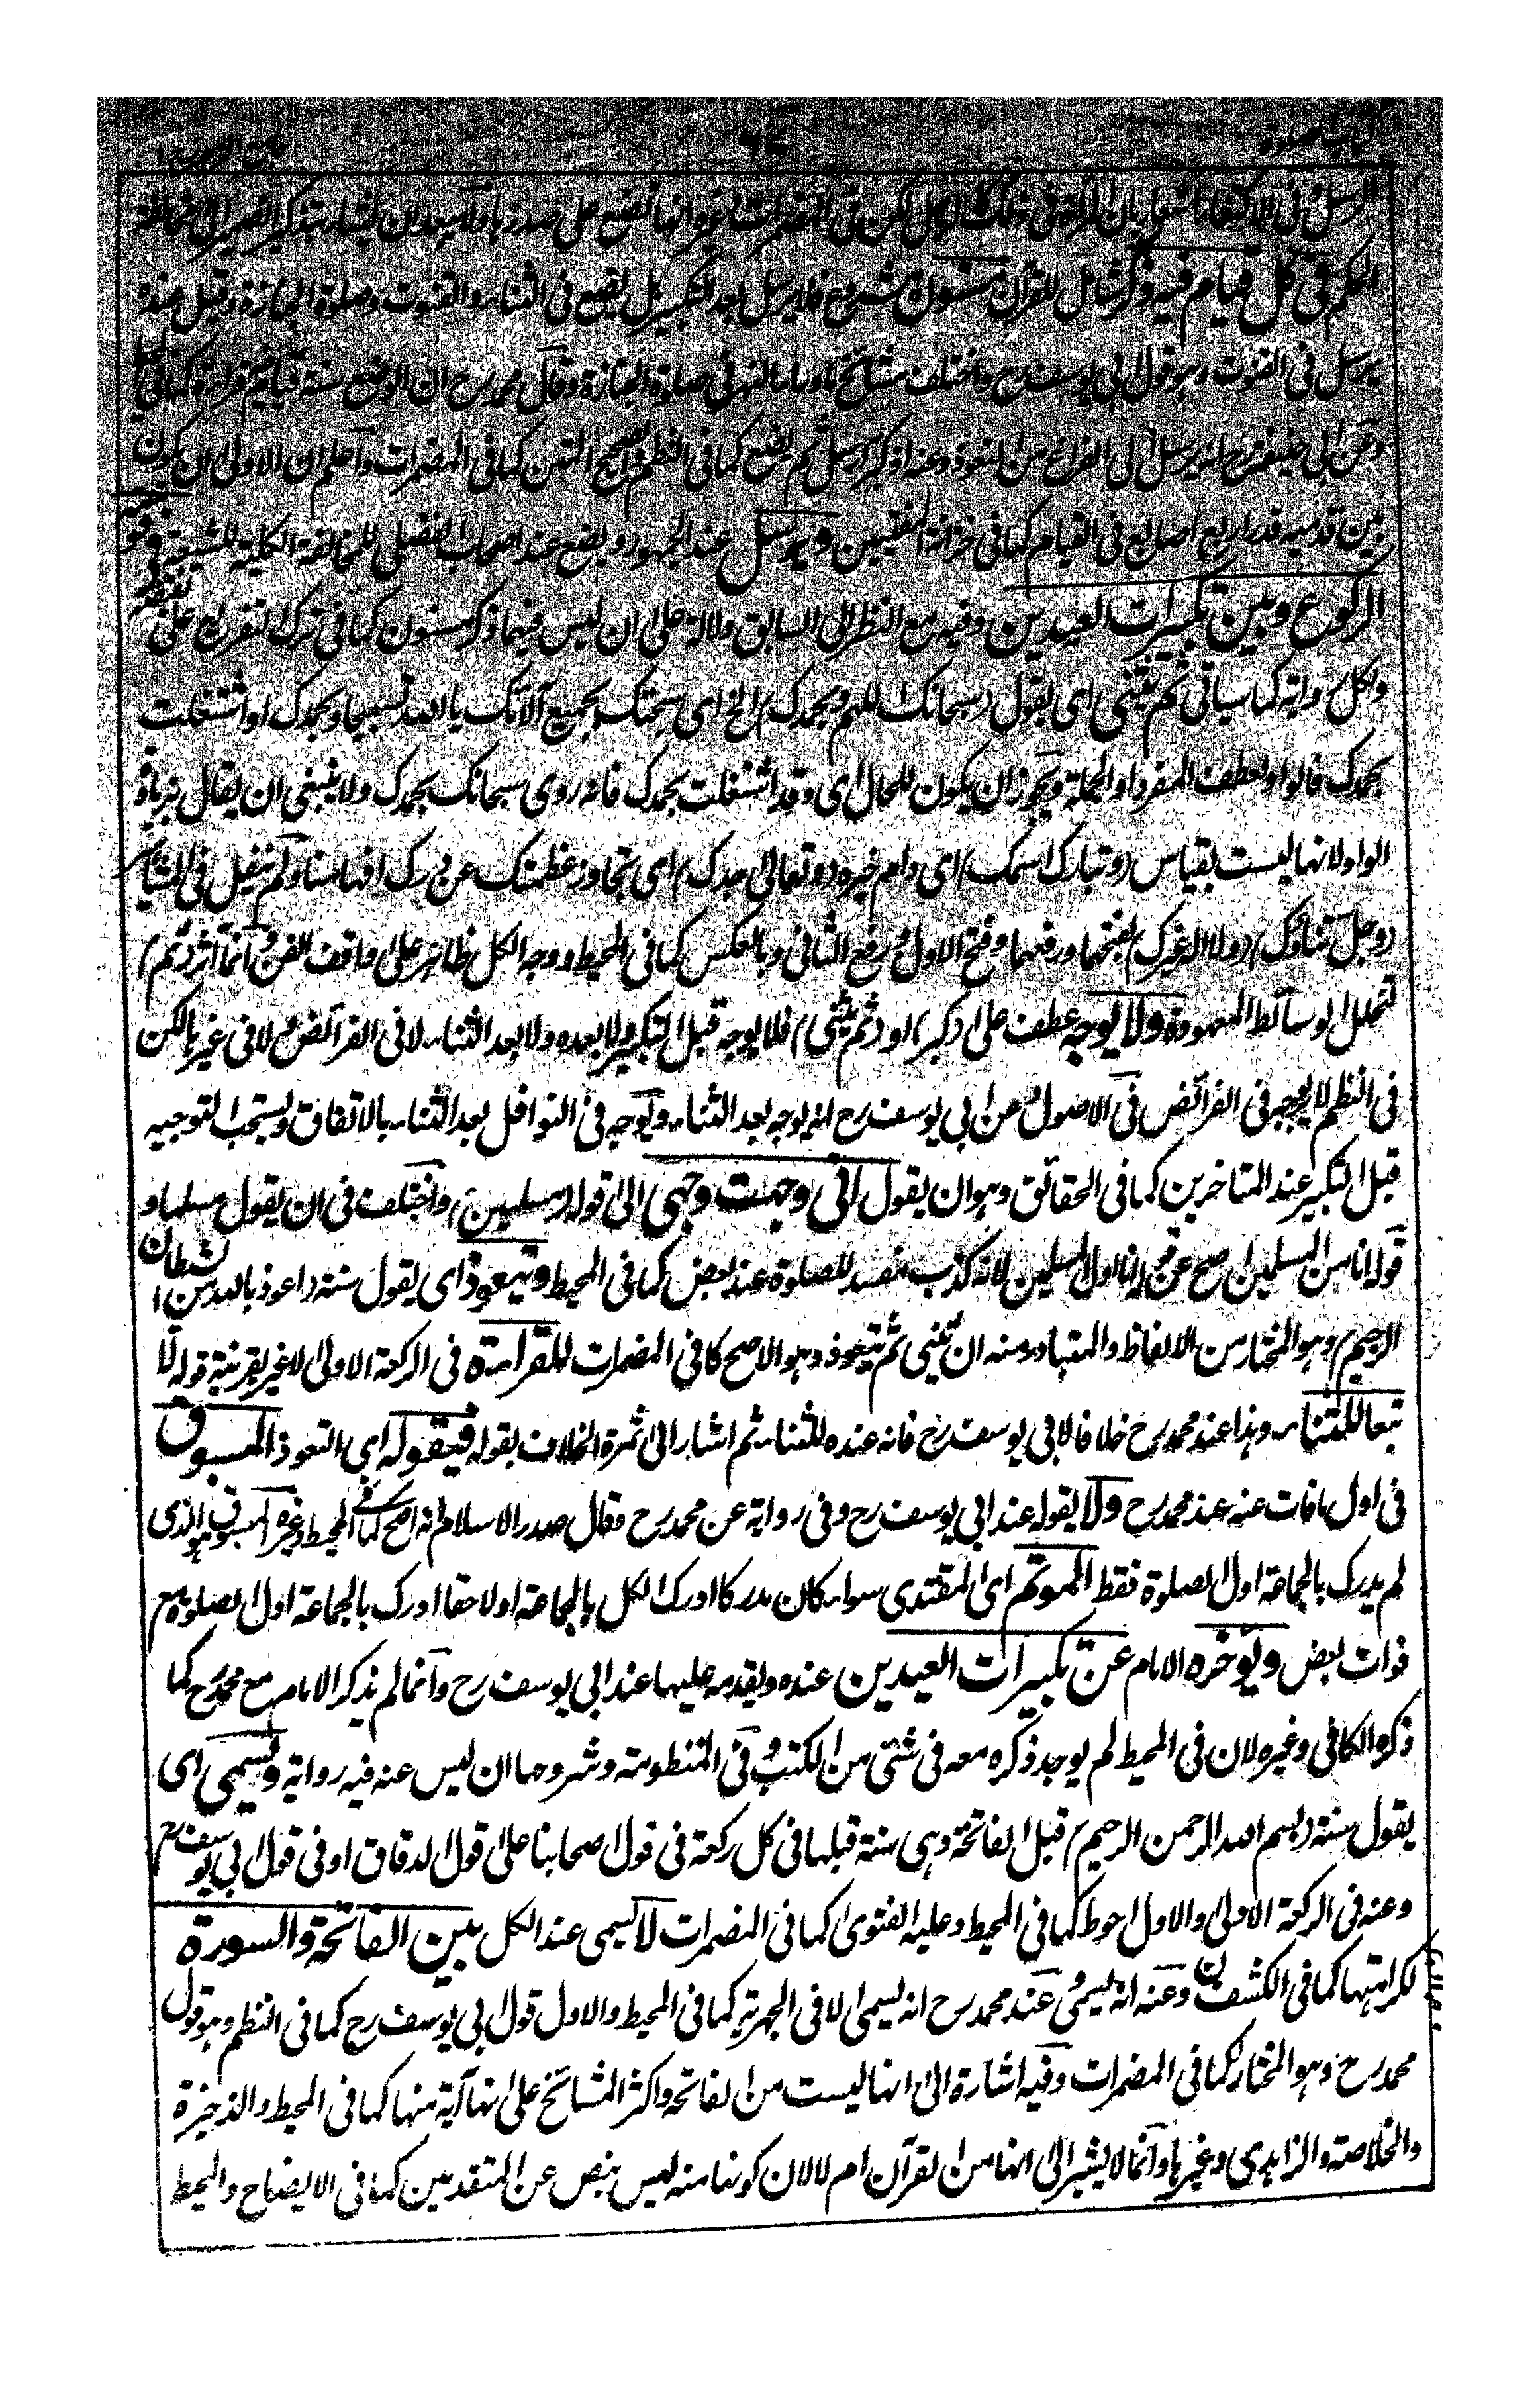 كتاب الصلوة
الرسل فى الاكتفاء اشعار بان المرأة فى ذلك كالرجل لكن فى المضمرات وغيره انها تضع على صدرها ولا يبعد ان يشار بتذكير الضمير الى مخالفة
الحكم فى كل قيام فيه ذكر شامل للقرآن مسنون مشروع فلا يرسل بعد التكبير بل يضع فى الثناء والقنوت وصلوة الجنازة وقيل عنده
يرسل فى القنوت وهو قول ابى يوسف رح واختلف مشائخ ماوراء النهر فى صلوة الجنازة وقال محمد رح ان الوضع سنة قيام فيه قراءة كما فى
وعن ابى حنيفة رح انه يرسل الى الفراغ من التعوذ وعنه اذ كبر ارسل ثم يضع كما فى النظم والصحيح المتن كما فى المضمرات واعلم ان الاولى ان يكون
بين قدميه قدر اربع اصابع فى القيام كما فى خزانة المفتيين ويرسل عند الجمهور ويضع عند اصحاب الفضلى للمخالفة الكلية للشيعة فى قومة
الركوع وبين تكبيرات العيدين وفيه مع النظر الى السابق دلالة على ان ليس فيهما ذكر مسنون كما فى ترك التفريع على
ولكل رواية كما سياتى ثم يثنى اى يقول (سبحانك اللهم وبحمدك) الخ اى سبحتك بجميع آلائك يا الله تسبيحا وبحمدك او اشتغلت
بحمدك فالواو لعطف المفرد او الجملة ويجوز ان يكون للحال اى وقد اشتغلت بحمدك فانه روى سبحانك بحمدك ولا ينبغى ان يقال بزيادة
الواو لانها ليست بقياس (وتبارك اسمك) اى دام خيره (وتعالى جدك) اى تجاوز عظمتك عن درك افهامنا ولم ينقل فى المشاهير
(وجل ثناؤك) (ولا اله غيرك) بفتحهما ورفعهما وفتح الاول ورفع الثانى وبالعكس كما فى المحيط ووجه الكل ظاهر على واقف الفن وانما آثر (ثم)
لتخلل الوسائط المعهودة ولا يوجه عطف على (كبر) او (ثم يثنى) فلا يوجه قبل التكبير ولا بعده ولا بعد الثناء لا فى الفرائض ولا فى غيرها لكن
فى النظم لا يوجه فى الفرائض فى الاصول وعن ابى يوسف رح انه يوجه بعد الثناء ويوجه فى النوافل بعد الثناء بالاتفاق ويستحب التوجيه
قبل التكبير عند المتاخرين كما فى الحقائق وهو ان يقول انى وجهت وجهى الى قوله (مسلمين) واختلف فى ان يقول مسلما و
قوله انا من المسلمين اصح عن انا اول المسلمين لانه كذب مفسد للصلوة عند بعض كما فى المحيط ويتعوذ اى يقول سنة (اعوذ بالله من الشيطان
الرجيم) وهو المختار من الالفاظ والمتبادر منه ان يثنى ثم يتعوذ وهو الاصح كما فى المضمرات للقراءة فى الركعة الاولى لا غير بقرينة قوله لا
تبعا للثناء وهذا عند محمد رح خلافا لابى يوسف رح فانه عنده للثناء ثم اشار الى ثمرة الخلاف بقوله فيقوله اى التعوذ المسبوق
فى اول مافات عنه عند محمد رح ولا يقوله عند ابى يوسف رح وفى رواية عن محمد رح وقال صدر الاسلام انه اصح كما فى المحيط وغيره المسبوق هو الذى
لم يدرك بالجماعة اول الصلوة فقط الموتم اى المقتدى سواء كان مدركا ادرك الكل بالجماعة او لاحقا ادرك بالجماعة اول الصلوة مع
فوات بعض ويوخره الامام عن تكبيرات العيدين عنده ويقدمه عليها عند ابى يوسف رح وانما لم يذكر الامام مع محمد رح كما
ذكره الكافى وغيره لان فى المحيط لم يوجد ذكره معه فى شئى من الكتب وفى المنظومة وشروحها ان ليس عنه فيه رواية ويسمى اى
يقول سنة (بسم الله الرحمن الرحيم) قبل الفاتحة وهى سنة قبلها فى كل ركعة فى قول اصحابنا على قول الدقاق او فى قول ابى يوسف رح
وعنه فى الركعة الاولى والاول احوط كما فى المحيط وعليه الفتوى كما فى المضمرات لا يسمى عند الكل بين الفاتحة والسورة
لكراهتها كما فى الكشف وعنه انه يسمى وعند محمد رح انه يسمى لا فى الجهرية كما فى المحيط والاول قول ابى يوسف رح كما فى النظم وهو قول
محمد رح وهو المختار كما فى المضمرات وفيه اشارة الى انها ليست من الفاتحة واكثر المشائخ على انها آية منها كما فى المحيط والذخيرة
والخلاصة والزاهدى وغيرها وانما لا يشير الى انها من القرآن ام لا لان كونها منه ليس بنص عن المتقدمين كما فى الايضاح والمحيط